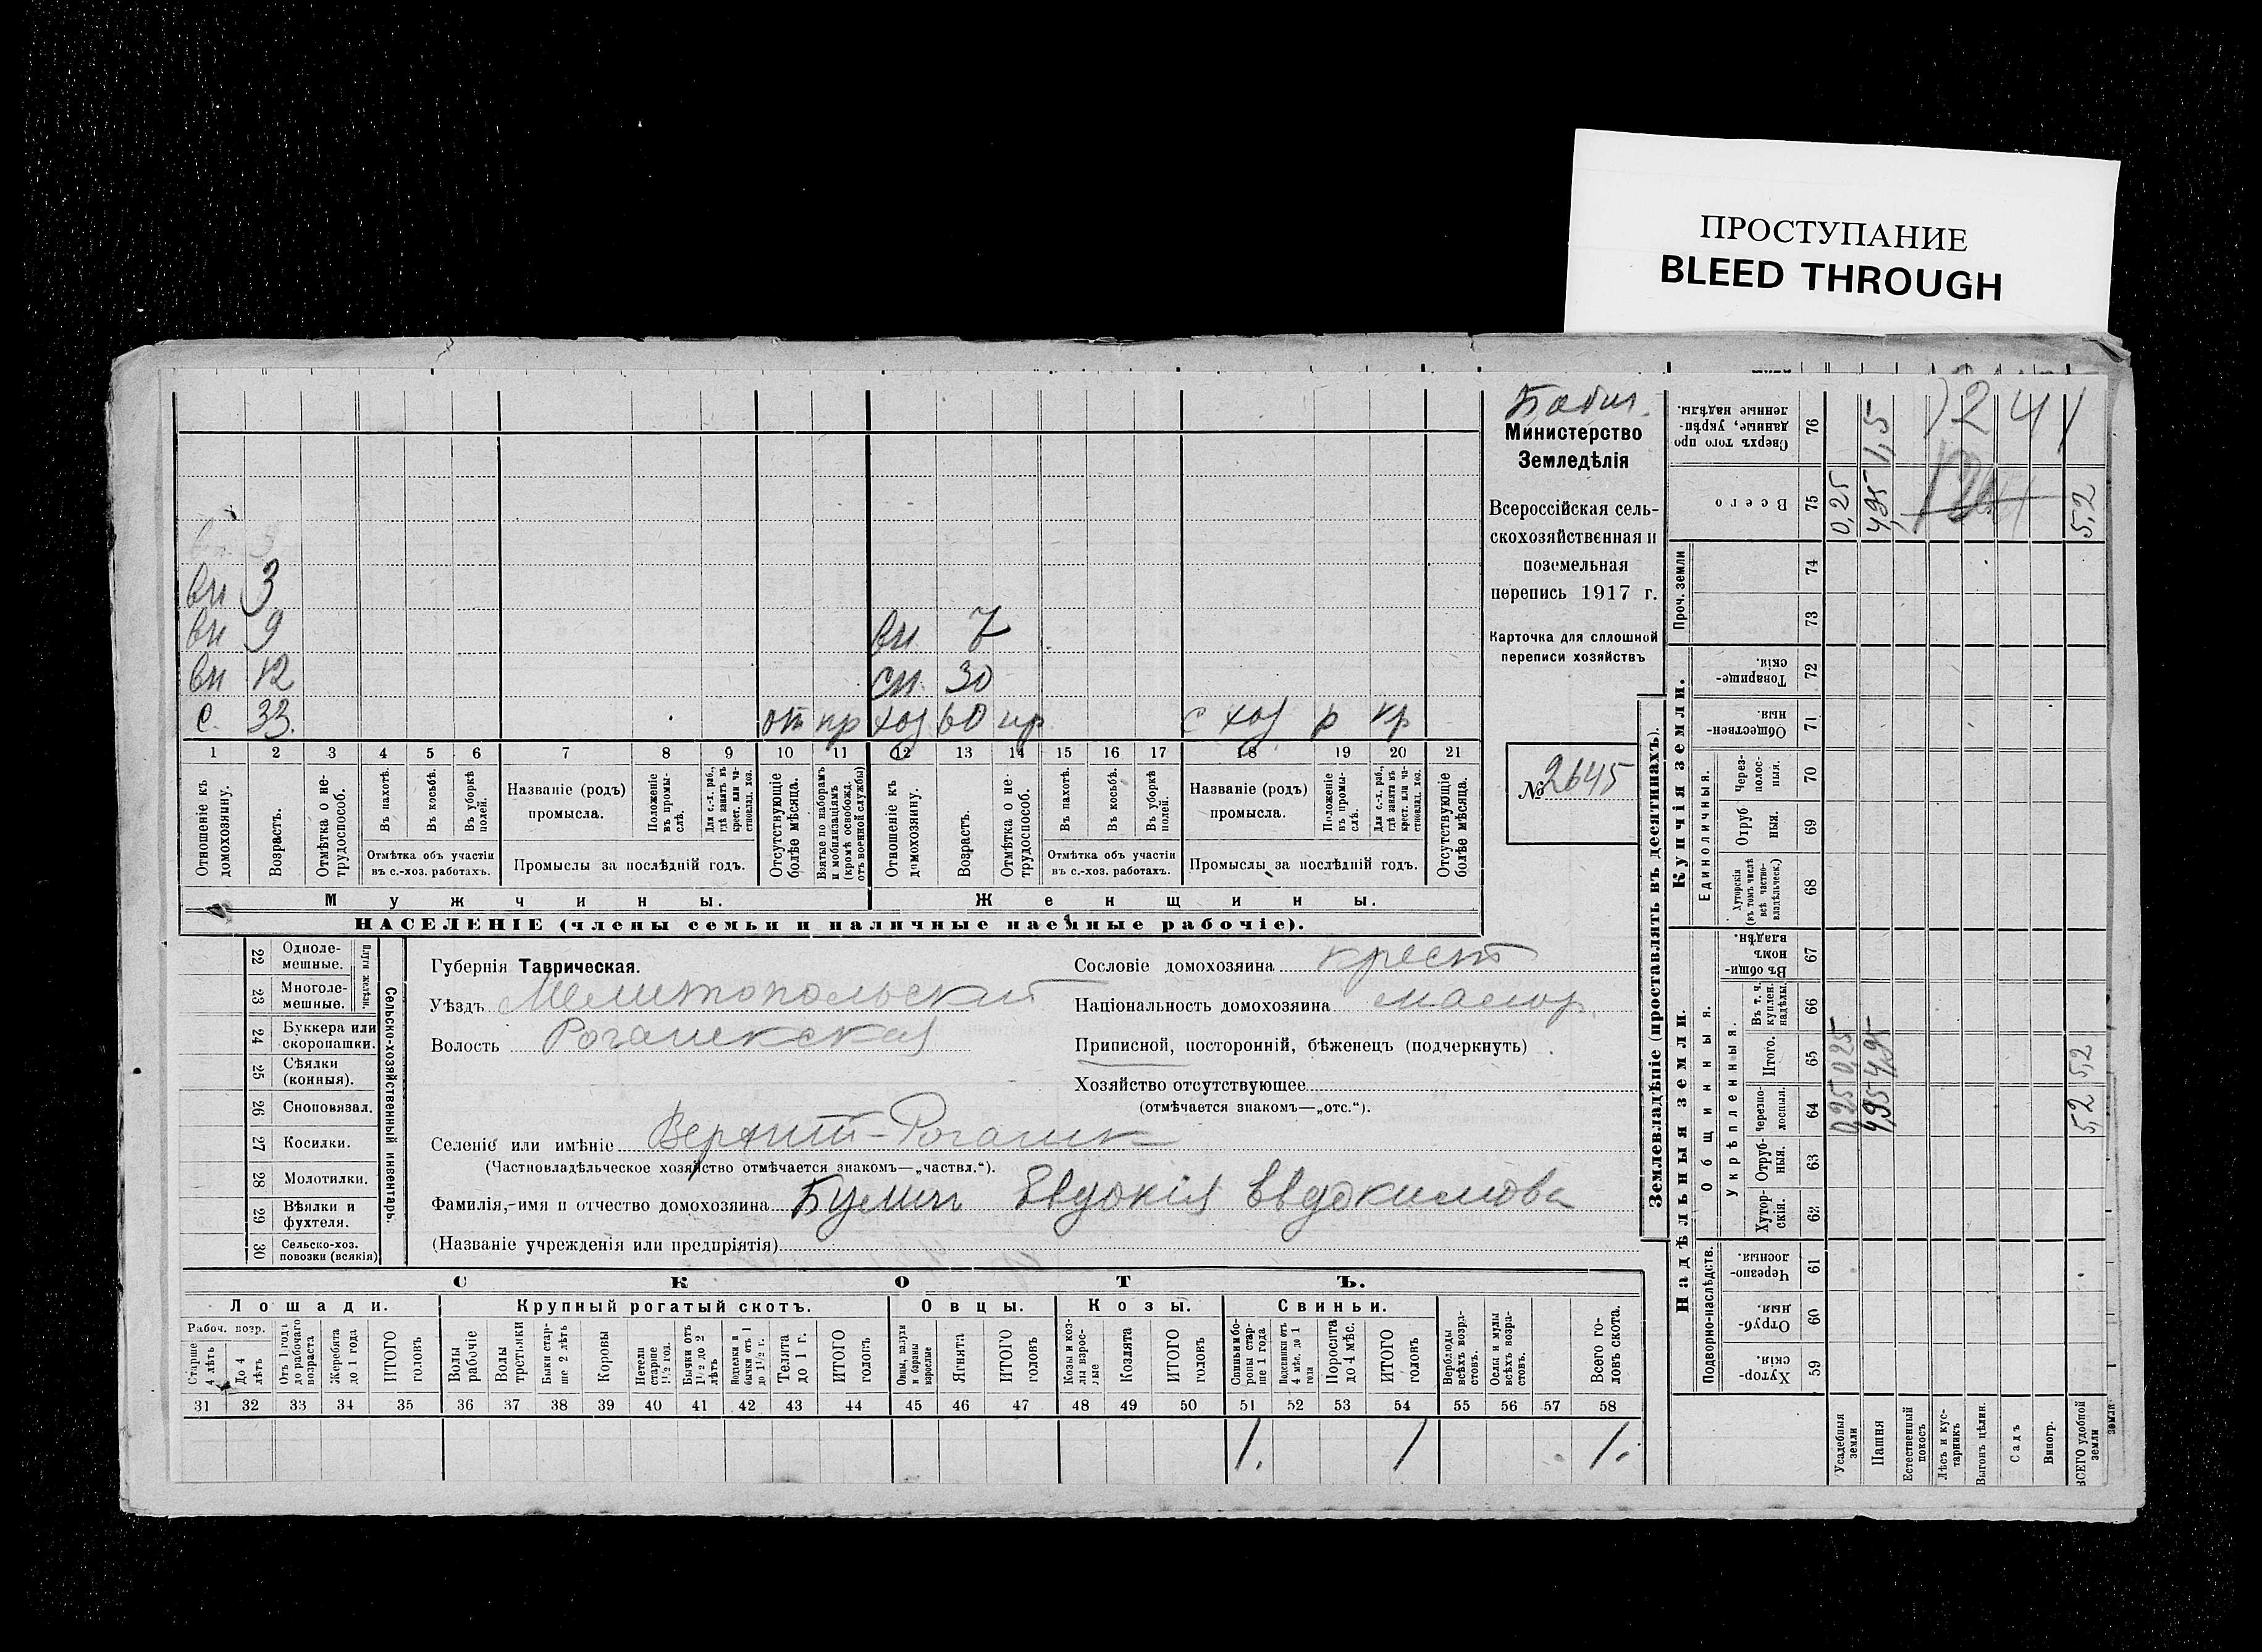 ПРОСТУПАНИЕ
BLEED THROUGH
Министерство
Земледѣлія
Всероссійская сель-
скохозяйственная и
поземельная
перепись 1917 г.
Карточка для сплошной
переписи хозяйствъ
№ 2645
вн 3
вн 9 вн 7
вн 12 сн. 30
с. 33. от пр хоз 60 нр с хоз р кр
1 2 3 4 5 6 7 8 9 10 11 12 13 14 15 16 17 18 19 20 21
Отношеніе къ домохозяину.
Возрастъ.
Отмѣтка о не-трудоспособ.
Въ пахотѣ.
Въ косьбѣ.
Въ уборкѣ полей.
Отмѣтка объ участіи
въ с.-хоз. работахъ.
Названіе (родъ)
промысла.
Положеніе въ промы-слѣ.
Для с.-х. раб., гдѣ занятъ въ крест. или ча-стновлад. хоз.
Промыслы за послѣдній годъ.
Отсутствующіе болѣе мѣсяца.
Взятые по наборамъ и мобилизаціямъ (кромѣ освобожд. отъ военной службы)
Отношеніе къ домохозяину.
Возрастъ.
Отмѣтка о не-трудоспособ.
Въ пахотѣ.
Въ косьбѣ.
Въ уборкѣ полей.
Отмѣтка объ участіи
въ с.-хоз. работахъ.
Названіе (родъ)
промысла.
Положеніе въ промы-слѣ.
Для с.-х. раб., гдѣ занятъ въ крест. или ча-стновлад. хоз.
Промыслы за послѣдній годъ.
Отсутствующіе болѣе мѣсяца.
Мужчины. Женщины.
НАСЕЛЕНІЕ (члены семьи и наличные наемные рабочіе).
22 Одноле-мешные.
23 Многоле-мешные.
Плуги желѣзн.
24 Буккера или скоропашки.
25 Сѣялки (конныя).
26 Сноповязал.
27 Косилки.
28 Молотилки.
29 Вѣялки и фухтеля.
30 Сельско-хоз. повозки (всякія)
Сельско-хозяйственный инвентарь.
Губернія Таврическая.
Уѣздъ Мелитопольскій
Волость Рогачикская
Сословіе домохозяина крест
Національность домохозяина малор.
Приписной, посторонній, бѣженецъ (подчеркнуть)
Хозяйство отсутствующее
(отмѣчается знакомъ—„отс.“).
Селеніе или имѣніе Верхній-Рогачик
(Частновладѣльческое хозяйство отмѣчается знакомъ—„частвл.“).
Фамилія, имя и отчество домохозяина Евдокія Евдокимова
(Названіе учрежденія или предпріятія)
СКОТЪ.
Лошади. Крупный рогатый скотъ. Овцы. Козы. Свиньи.
Рабоч. возр.
Старше 4 лѣтъ
До 4 лѣтъ
Отъ 1 года до рабочаго возраста
Жеребята до 1 года
ИТОГО головъ
Волы рабочіе
Волы третьяки
Быки стар-ше 2 лѣтъ
Коровы
Нетели старше 1½ год.
Бычки отъ 1½ до 2 лѣтъ
Нетелки и бычки отъ 1 до 1½ г.
Телята до 1 г.
ИТОГО головъ
Овцы, валухи и бараны взрослые
Ягнята
ИТОГО головъ
Козы и коз-лы взрос-лые
Козлята
ИТОГО головъ
Свиньи и бо-ровы стар-ше 1 года
Подсвинки отъ 4 мѣс. до 1 года
Поросята до 4 мѣс.
ИТОГО головъ
Верблюды всѣхъ возра-стовъ.
Ослы и мулы всѣхъ возра-стовъ.
Всего го-ловъ скота.
31 32 33 34 35 36 37 38 39 40 41 42 43 44 45 46 47 48 49 50 51 52 53 54 55 56 57 58
1. 1 1.
Землевладѣніе (проставлять въ десятинахъ).
Надѣльныя земли.
Купчія земли.
Подворно-наслѣдств.
Общинныя.
Укрѣпленныя.
Единоличныя.
Проч. земли
59 Хутор-скія.
60 Отруб-ныя.
61 Черезпо-лосныя.
62 Хутор-скія.
63 Отруб-ныя.
64 Черезпо-лосныя. 0,25 4,95 5,2
65 Итого. 0,25 4,95 5,2
66 Въ т. ч. куплен. надѣлы.
67 Въ общи-номъ владѣн.
68 Хуторскія (въ томъ числѣ всѣ частно-владѣльческ.)
69 Отруб-ныя.
70 Через-полос-ныя.
71 Обществен-ныя.
72 Товарище-скія.
73
74
75 Всего 0,25 4,95 5,2
76 Сверхъ того про-данные, укрѣп-ленные надѣлы. 1,5
1241
Усадебныя земли
Пашня
Естественный покосъ
Лѣсъ и кус-тарникъ
Выгонъ цѣлин.
Садъ
Виногр.
ВСЕГО удобной земли